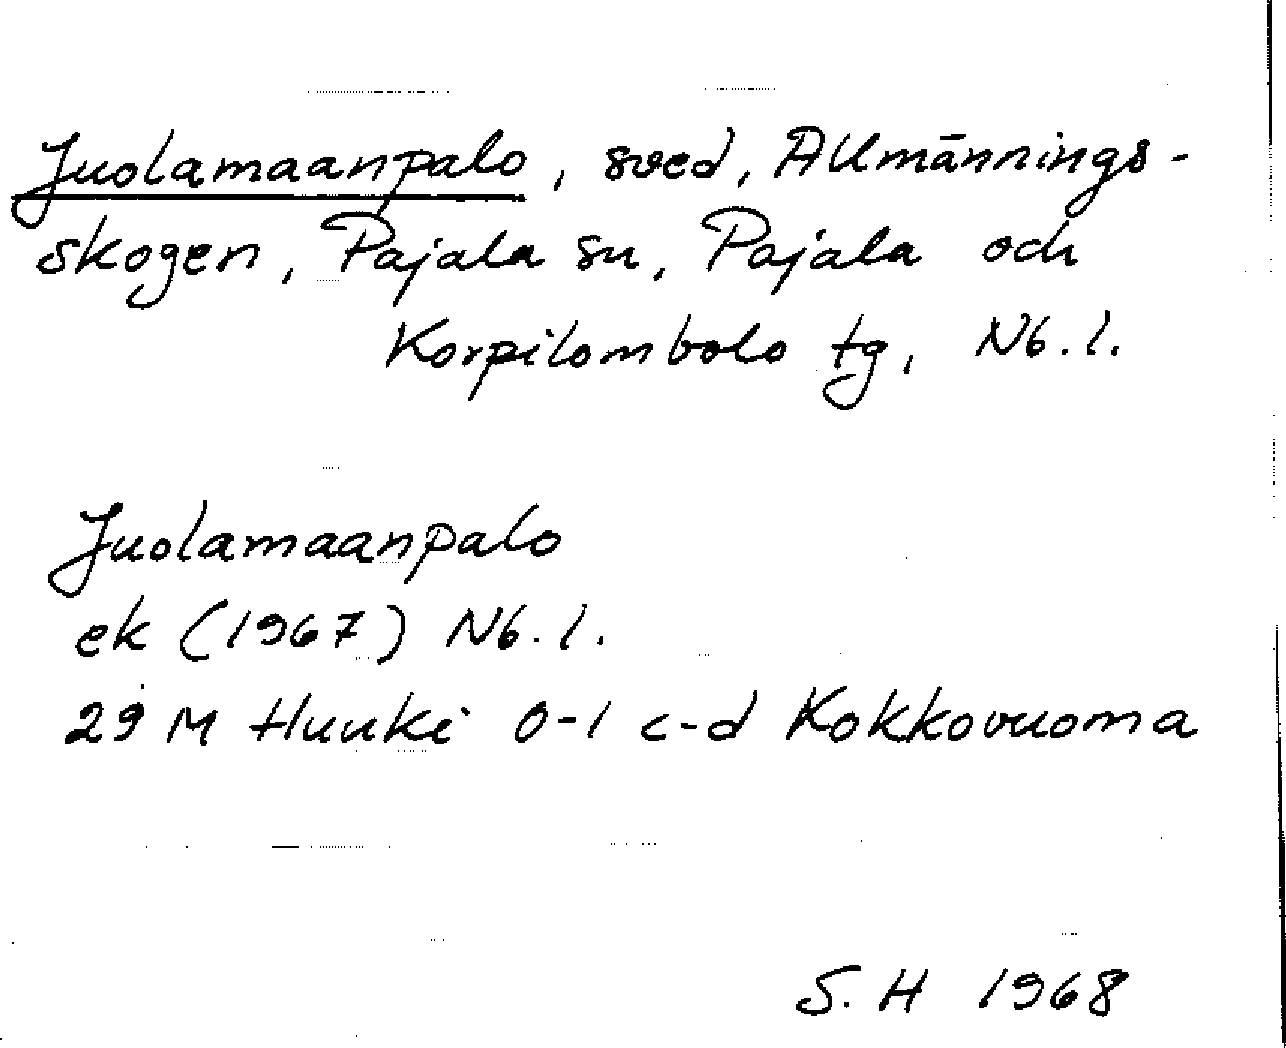 Juolamaanpalo, sved, Allmännings-
skogen, Pajala sn, Pajala och
Korpilombolo tg, Nb. l.
Juolamaanpalo
ek (1967) Nb. l.
29 M Huuki 0-1 c-d Kokkovuoma
S. H 1968